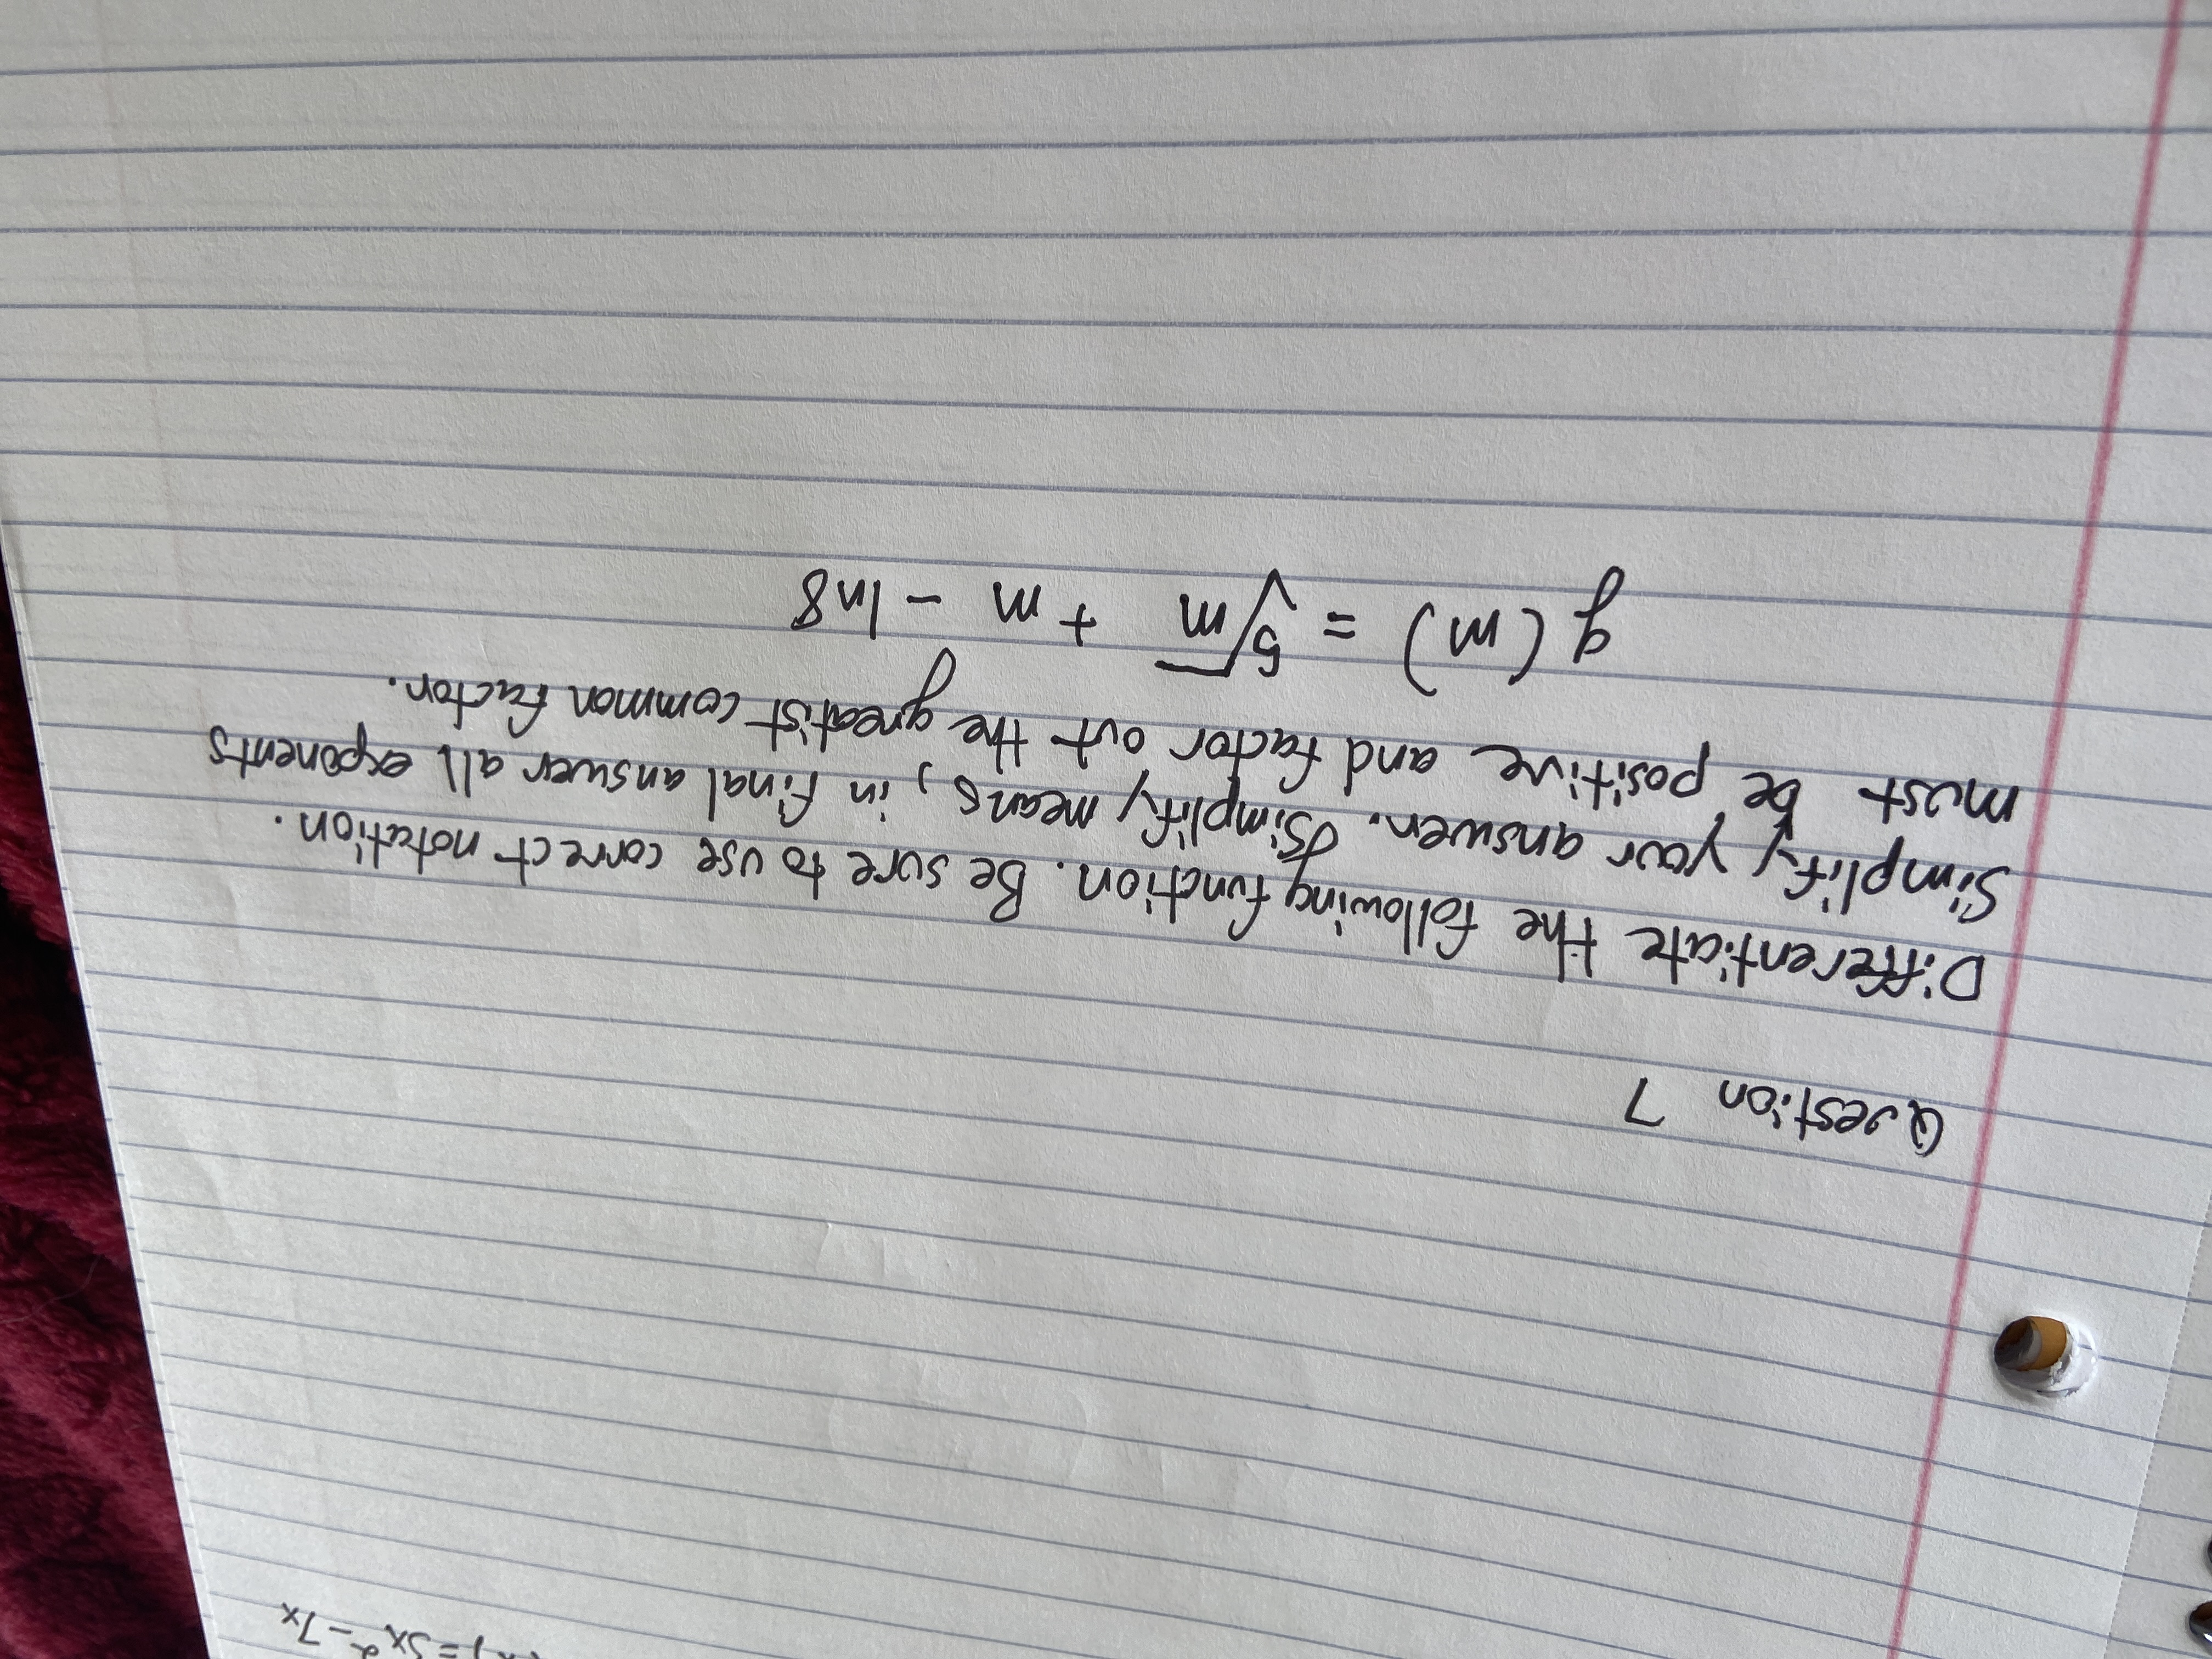 = 5x² - 7x
Question 7
Differenticate the following function. Be sure to use correct notation.
Simplify your answer. Simplify means, in final answer all exponents
must be positive and factor out the greatist common factor.
g(m) = ⁵√m + m - ln8